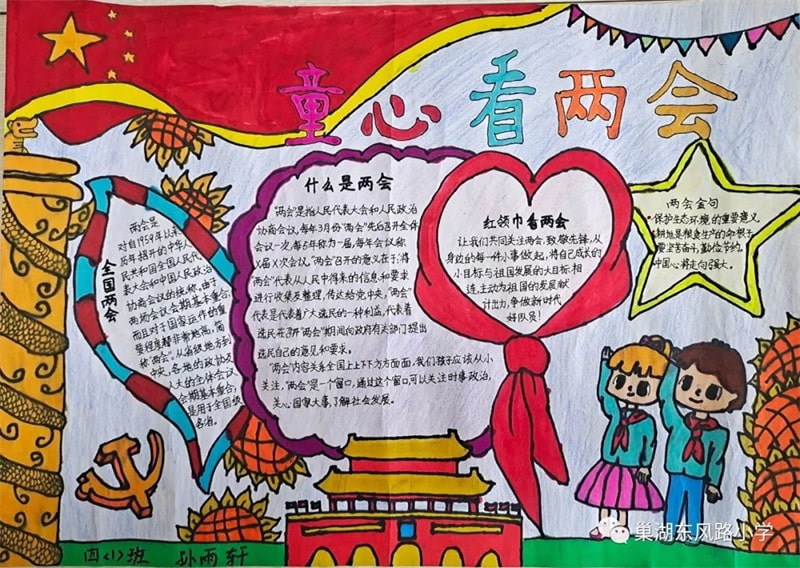 童心看两会
什么是两会
“两会”是指人民代表大会和人民政治
协商会议,每年3月份“两会”先后召开全体
会议一次,每5年称为一届,每年会议称
X届X次会议。“两会”召开的意义在于:将
两会”代表从人民中得来的信息和要求
进行收集及整理,传达给党中央,“两会”
代表是代表着广大选民的一种利益,代表着
选民在召开“两会”期间向政府有关部门提出
选民自己的意见和要求。
“两会”内容关系全国上上下下方方面面,我们孩子应该从小
关注,“两会”是一个窗口,通过这个窗口,可以关注时事政治,
关心国家大事,了解社会发展。
红领巾看两会
让我们共同关注两会,致敬先锋,从
身边的每一件小事做起,将自己成长的
小目标与祖国发展的大目标相
连,主动为祖国的发展献
计出力,争做新时代
好队员!
两会金句
保护生态环境的重要意义
耕地是粮食生产的命根子
要艰苦奋斗,勤俭节约。
中国心将走向强大。
全国两会
两会是
对自1959年以来
历年召开的中华人
民共和国全国人民代
表大会和中国人民政治
协商会议的统称。由于
两场会议会期基本重合,
而且对于国家运作的重
要程度都非常地高,简
称“两会”。从省级地方到
中央,各地的政协及
人大的全体会议
会期基本重合,
是用于全国级
各省。
四(1)班 孙雨轩
巢湖东风路小学